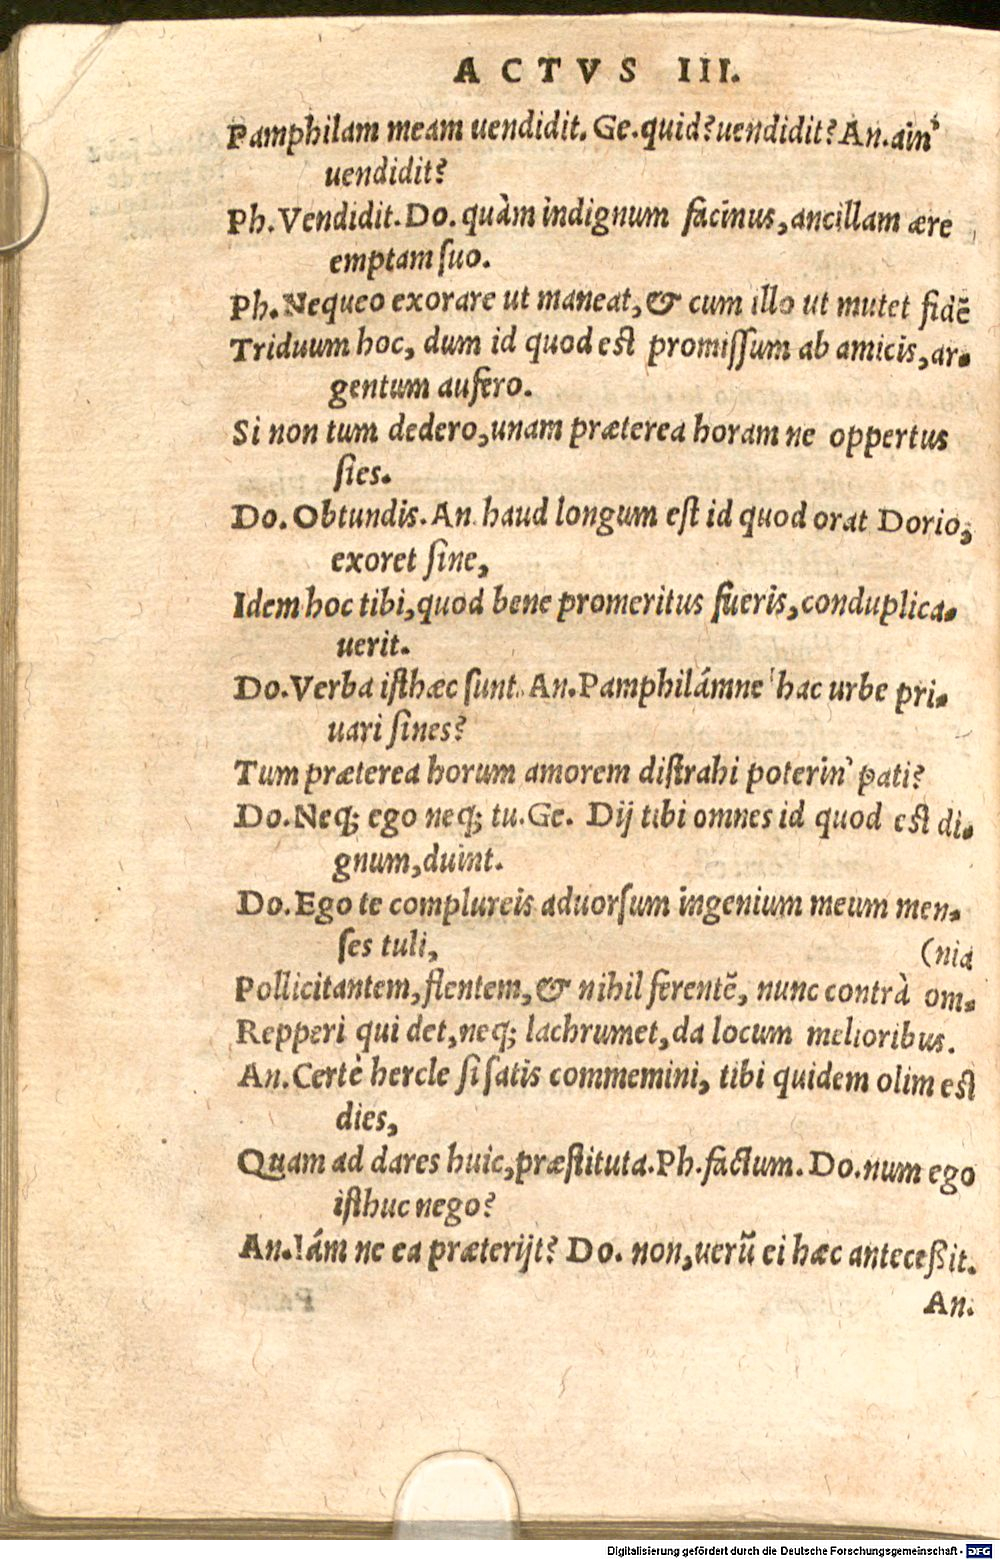 ACTVS III.
Pamphilam meam uendidit. Ge. quid? uendidit? An. ain'
uendidit?
Ph. Vendidit. Do. quàm indignum facinus, ancillam ære
emptam suo.
Ph. Nequeo exorare ut maneat, & cum illo ut mutet fidē
Triduum hoc, dum id quod est promissum ab amicis, ar-
gentum aufero.
Si non tum dedero, unam præterea horam ne oppertus
sies.
Do. Obtundis. An. haud longum est id quod orat Dorio,
exoret sine,
Idem hoc tibi, quod bene promeritus fueris, conduplica-
uerit.
Do. Verba isthæc sunt. An. Pamphilámne hac urbe pri-
uari sines?
Tum præterea horum amorem distrahi poterin' pati?
Do. Neq; ego neq; tu. Ge. Dij tibi omnes id quod est di-
gnum, duint.
Do. Ego te complureis aduorsum ingenium meum men-
ses tuli, (nia
Pollicitantem, flentem, & nihil ferentē, nunc contrà om-
Repperi qui det, neq; lachrumet, da locum melioribus.
An. Certè hercle si satis commemini, tibi quidem olim est
dies,
Quam ad dares huic, præstituta. Ph. factum. Do. num ego
isthuc nego?
An. Iám ne ea præterijt? Do. non, uerū ei hæc anteceßit.
An.
Digitalisierung gefördert durch die Deutsche Forschungsgemeinschaft - DFG